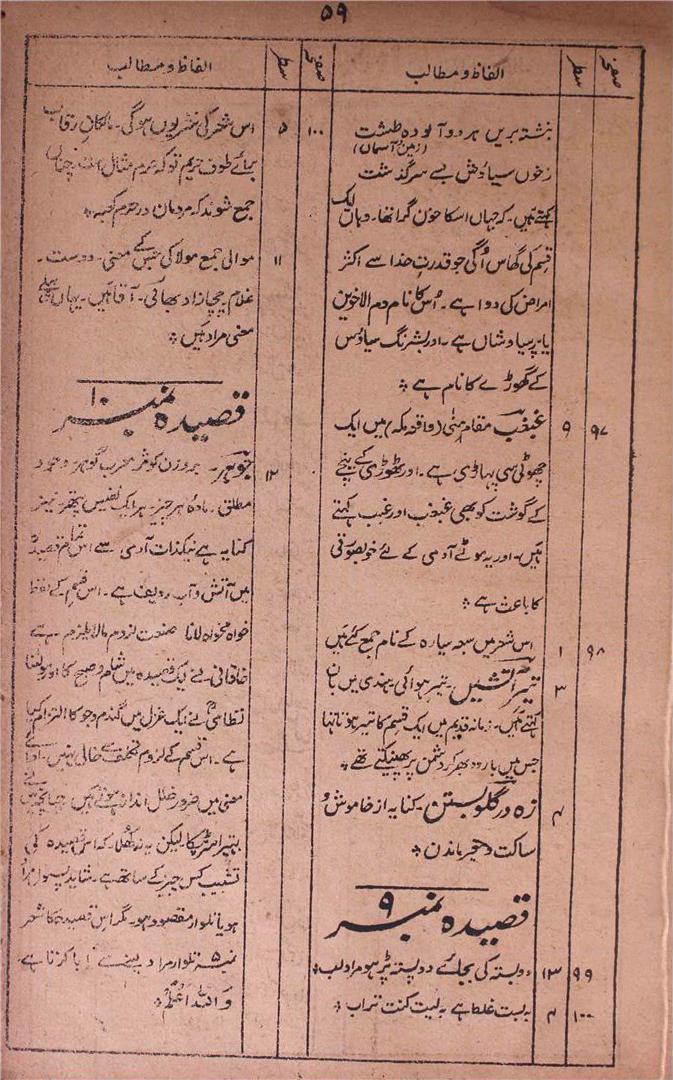 ۵۹
صفحہ سطر الفاظ و مطالب
بنشتہ بریں ہر دو آلودہ طشت
(زمین و آسمان)
زخوں سیاؤش بسے سرگذشت
کہتے ہیں۔ کہ جہاں اسکا خون گرا تھا۔ وہاں ایک
قسم کی گھاس اُگی جو قدرتِ خدا سے اکثر
امراض کی دوا ہے۔ اُس کا نام دم الاخوین
یا پرسیاوشاں ہے۔ اور شبرنگ سیاؤس
کے گھوڑے کا نام ہے ؞
۹۷ ۹ غبغب مقام منٰی (واقع مکہ) میں ایک
چھوٹی سی پہاڑی ہے۔ اور ٹھوڑی کے نیچے
کے گوشت کو بھی غبغب اور غبب کہتے
ہیں۔ اور یہ موٹے آدمی کے لئے خوبصورتی
کا باعث ہے ؞
۹۸ ۱ اس شعر میں سبعہ سیارہ کے نام جمع کئے ہیں
۳ تیر آتشیں۔ تیر ہوائی ہندی میں بان
کہتے ہیں۔ زمانہ قدیم میں ایک قسم کا تیر ہوتا تھا
جس میں بارود بھر کر دشمن پر پھینکتے تھے ؞
۴ زہ در گلو بستن۔ کنایہ از خاموش و
ساکت و متحیر ماندن ؞
قصیدہ نمبر ۹
۹۹ ۱۳ دوبستہ کی بجائے دو پستہ پڑھو مراد لب ؞
۱۰۰ ۴ بہ بست غلط ہے یہ لیت کنت تراب ؞
صفحہ سطر الفاظ و مطالب
۱۰۰ ۵ اس شعر کی نثر یوں ہوگی۔ مالکانِ رقاب
برائے طوف حریم تو کہ حرم مثال است چناں
جمع شوند کہ مردمان در حرم کعبہ ؞
۱۱ موالی جمع مولا کی جس کے معنی۔ دوست۔
غلام۔ چچازاد بھائی۔ آقا ہیں۔ یہاں پہلے
معنی مراد ہیں ؞
قصیدہ نمبر ۱۰
۱۳ جوہر۔ بروزن کوثر معرب گوہر و
مطلق۔ مادہ ہر چیز۔ ہر ایک نفیس پتھر نیز
کنایہ ہے نیکذات آدمی سے اس تمام قصیدہ
میں آتش و آب ردیف ہے۔ اس قسم کے لفظ
خواہ مخواہ لانا صنعت لزوم مالایلزم ہے
خاقانی نے ایک قصیدہ میں شام و صبح کا اور مولانا
نظامیؒ نے ایک غزل میں گندم و جو کا التزام کیا
ہے۔ اس قسم کے لزوم تکلف سے خالی نہیں۔
معنی میں ضرور خلل انداز ہوتے ہیں چنانچہ میں نے
بہتیرا سر پٹکا لیکن یہ نہ کھلا۔ کہ اس قصیدہ کی
تشبیب کس چیز کے ساتھ ہے۔ شاید
ہو یا تلوار مقصود ہو۔ مگر اس قصیدہ کا شعر
نمبر ۵ تلوار مراد لینے سے ابا کرتا ہے۔
واللہ اعلم ؞